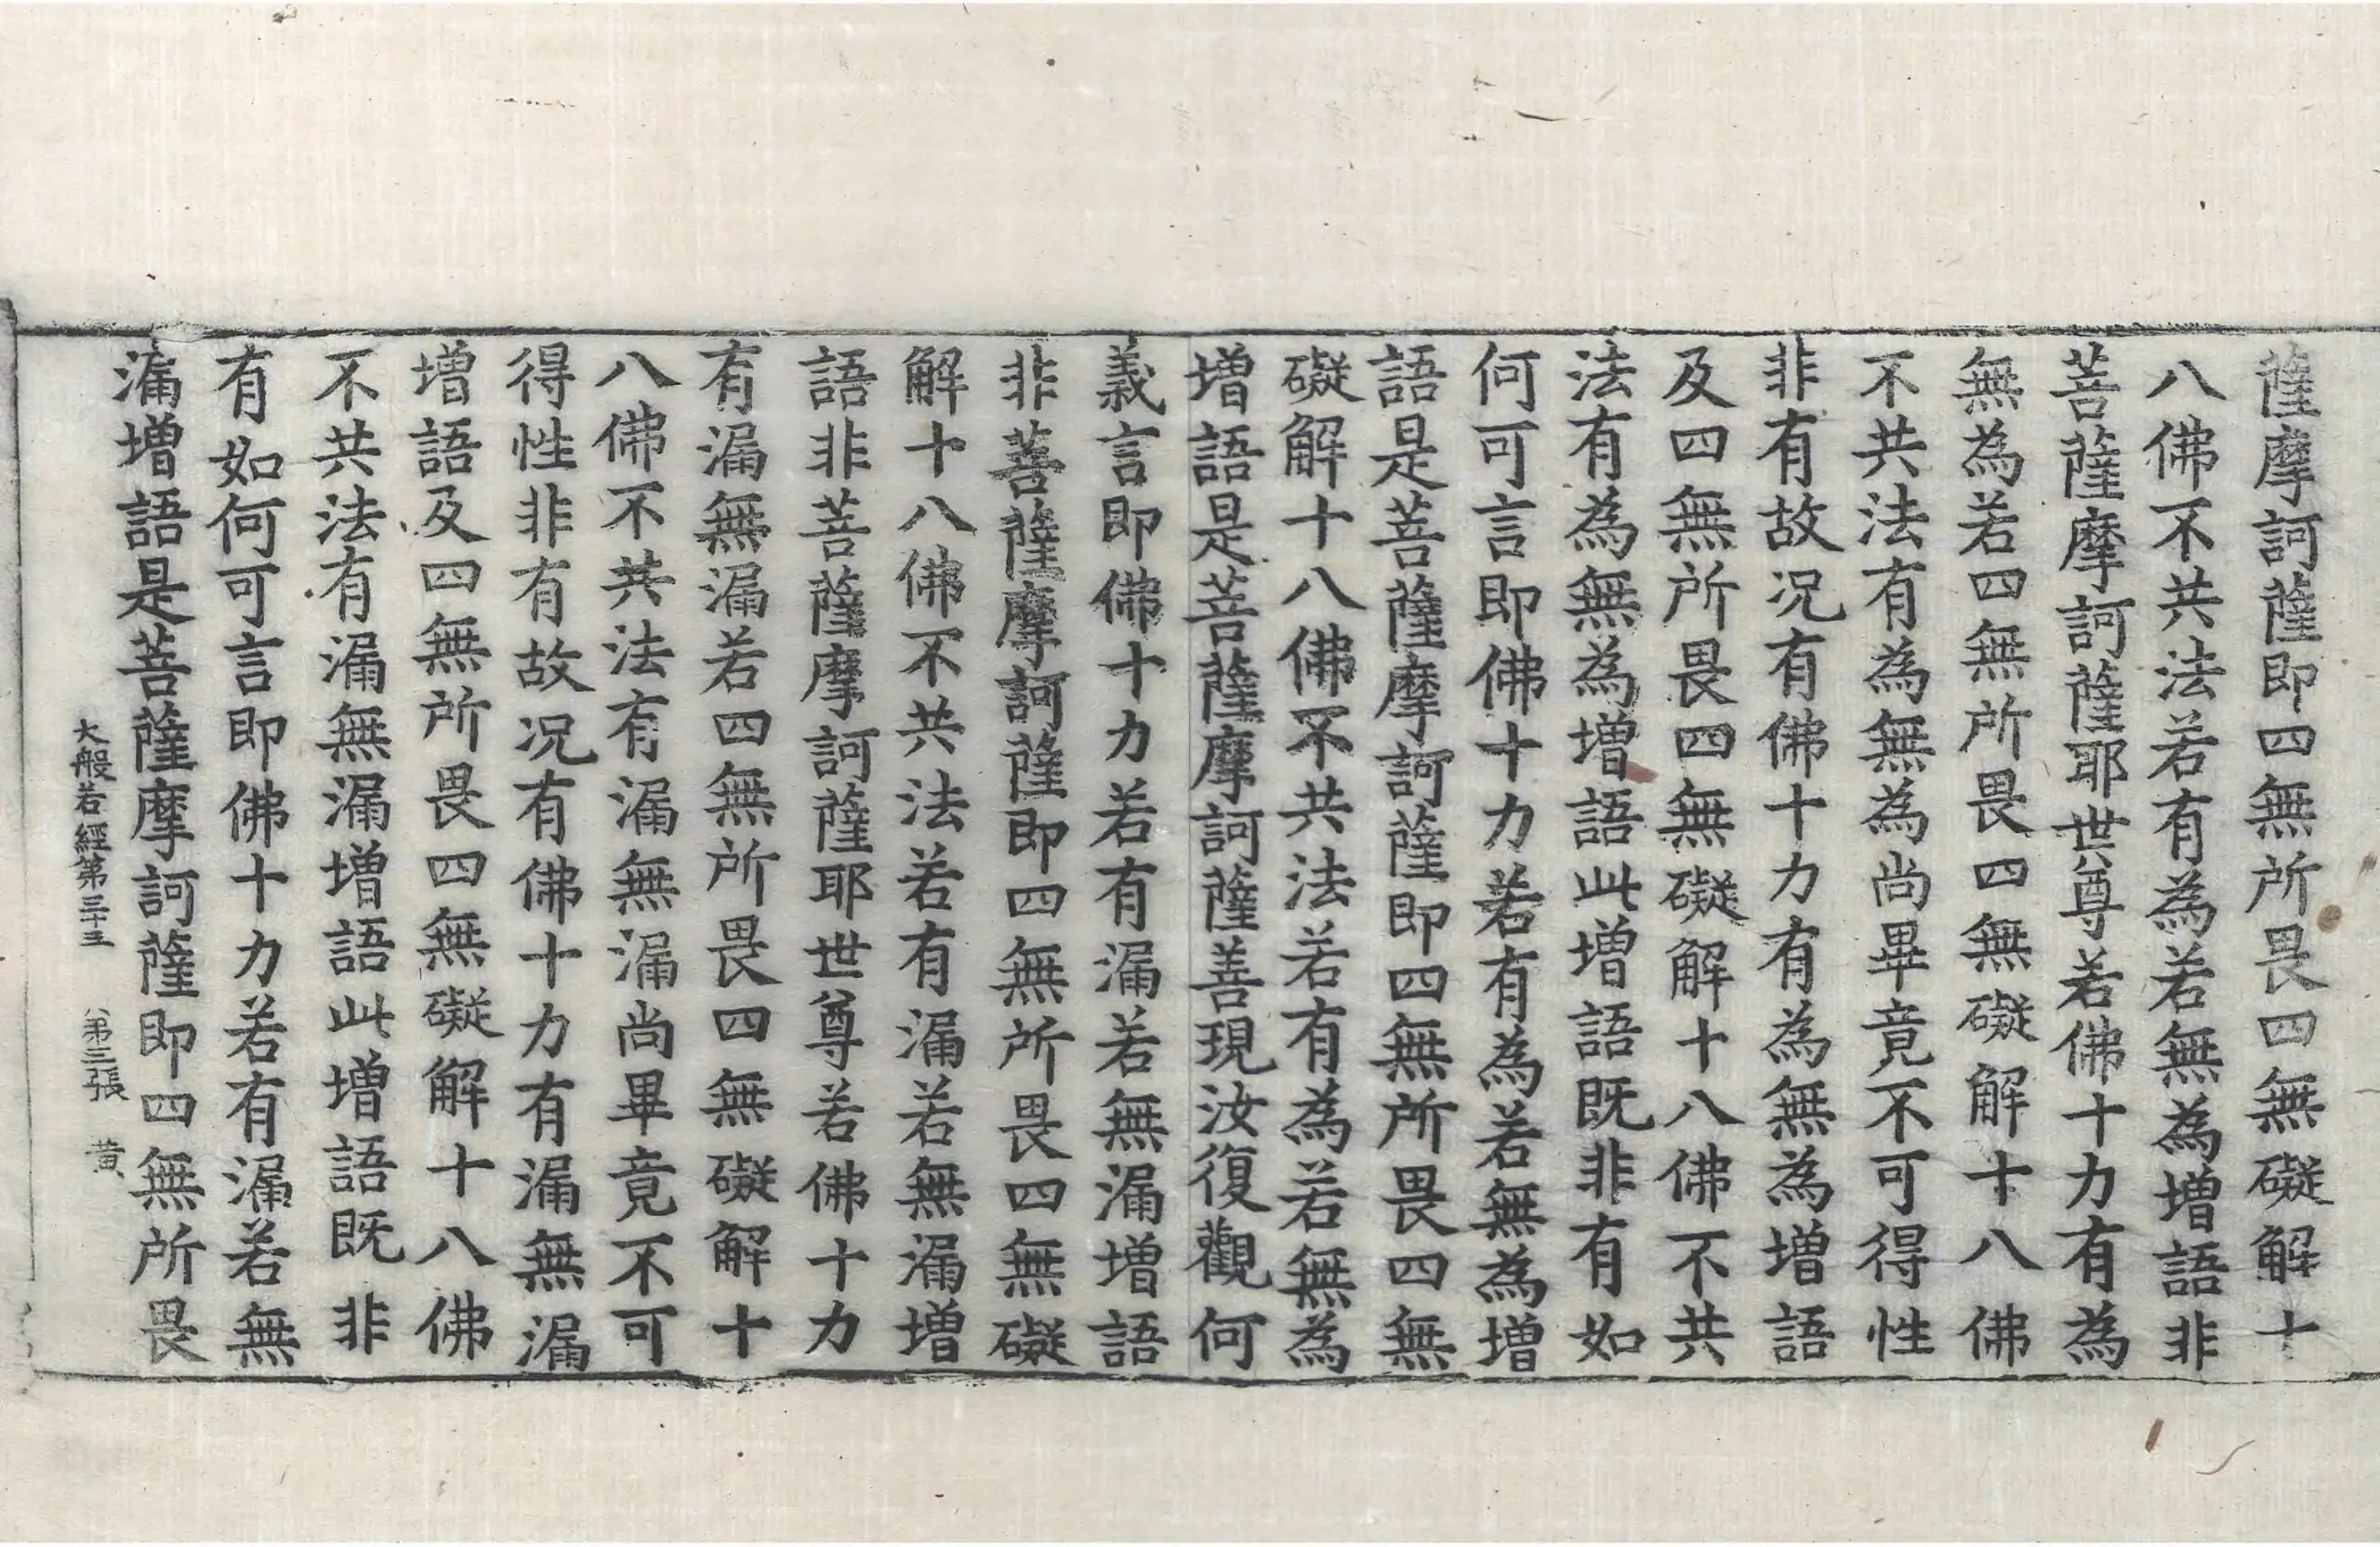 薩摩訶薩即四無所畏四無礙解十
八佛不共法若有為若無為增語非
菩薩摩訶薩耶世尊若佛十力有為
無為若四無所畏四無礙解十八佛
不共法有為無為尚畢竟不可得性
非有故况有佛十力有為無為增語
及四無所畏四無礙解十八佛不共
法有為無為增語此增語既非有如
何可言即佛十力若有為若無為增
語是菩薩摩訶薩即四無所畏四無
礙解十八佛不共法若有為若無為
增語是菩薩摩訶薩善現汝復觀何
義言即佛十力若有漏若無漏增語
非菩薩摩訶薩即四無所畏四無礙
解十八佛不共法若有漏若無漏增
語非菩薩摩訶薩耶世尊若佛十力
有漏無漏若四無所畏四無礙解十
八佛不共法有漏無漏尚畢竟不可
得性非有故况有佛十力有漏無漏
增語及四無所畏四無礙解十八佛
不共法有漏無漏增語此增語既非
有如何可言即佛十力若有漏若無
漏增語是菩薩摩訶薩即四無所畏
大般若經第三十三 第三張 黄